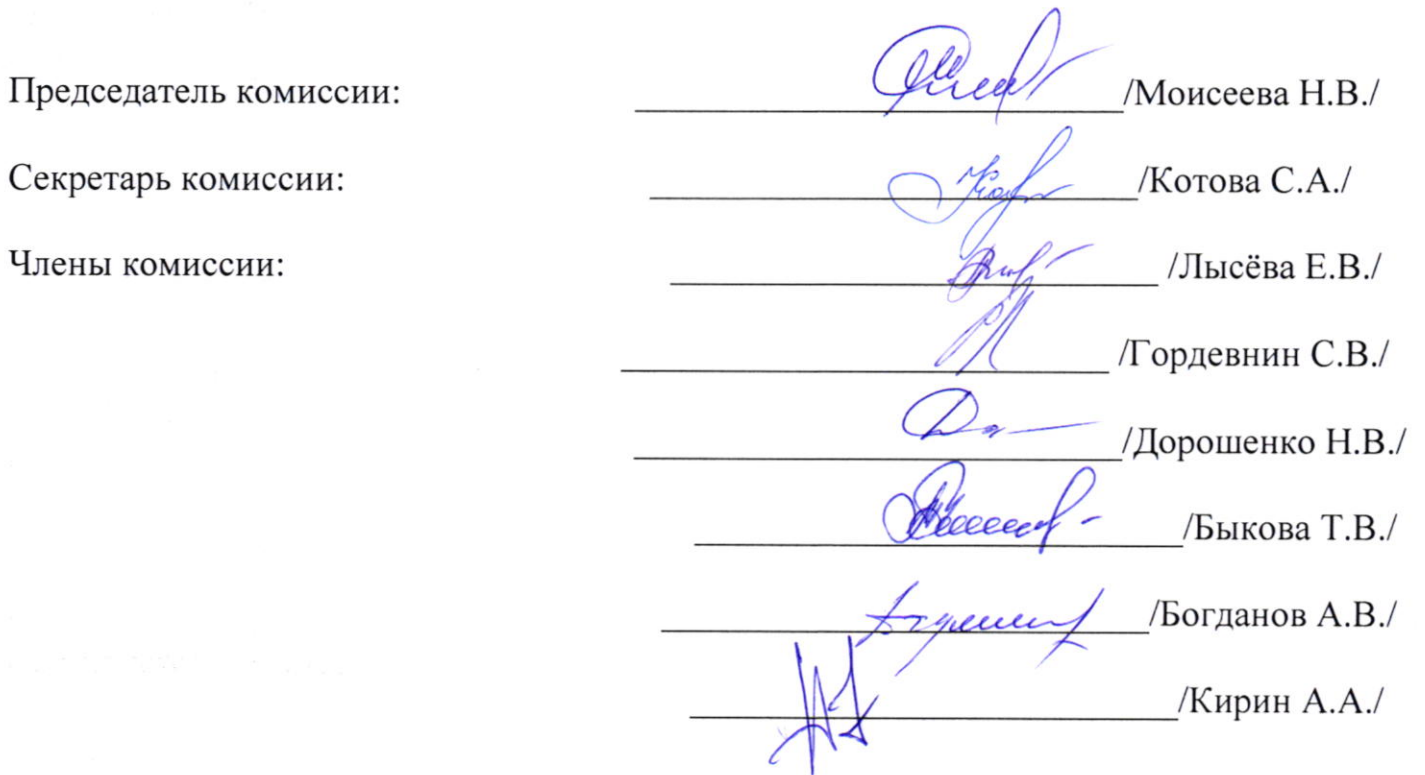 Председатель комиссии: /Моисеева Н.В./
Секретарь комиссии: /Котова С.А./
Члены комиссии: /Лысёва Е.В./
/Гордевнин С.В./
/Дорошенко Н.В./
/Быкова Т.В./
/Богданов А.В./
/Кирин А.А./